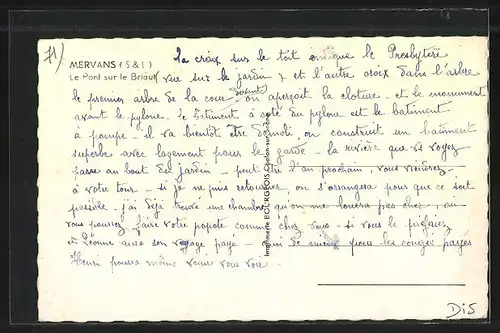 71)
MERVANS (S & L)
Le Pont sur le Briant
La croix sur le toit indique le Presbytère
(vue sur le jardin) et l'autre croix dans l'arbre
le premier arbre de la cour on aperçoit la cloture - et le monument
devant
avant le pylone. Le batiment à coté du pylone est le batiment
à pompe - il va bientôt être démoli, on construit un batiment
superbe avec logement pour le garde - la rivière que vs voyez
passe au bout du jardin - peut être l'an prochain, vous viendrez
à votre tour - si je ne puis retourner, on s'arrangera pour que ce soit
possible - j'ai déjà trouvé une chambre qu'on me louera pas cher, ou
vous pourrez faire votre popote comme chez vous - si vous le préférez
et Léonne aura son voyage payé - ainsi de mieux pour les congés payés
Henri pourra même venir vous voir -
Imprimerie BOURGEOIS, Chalon-sur-Saône
DiS